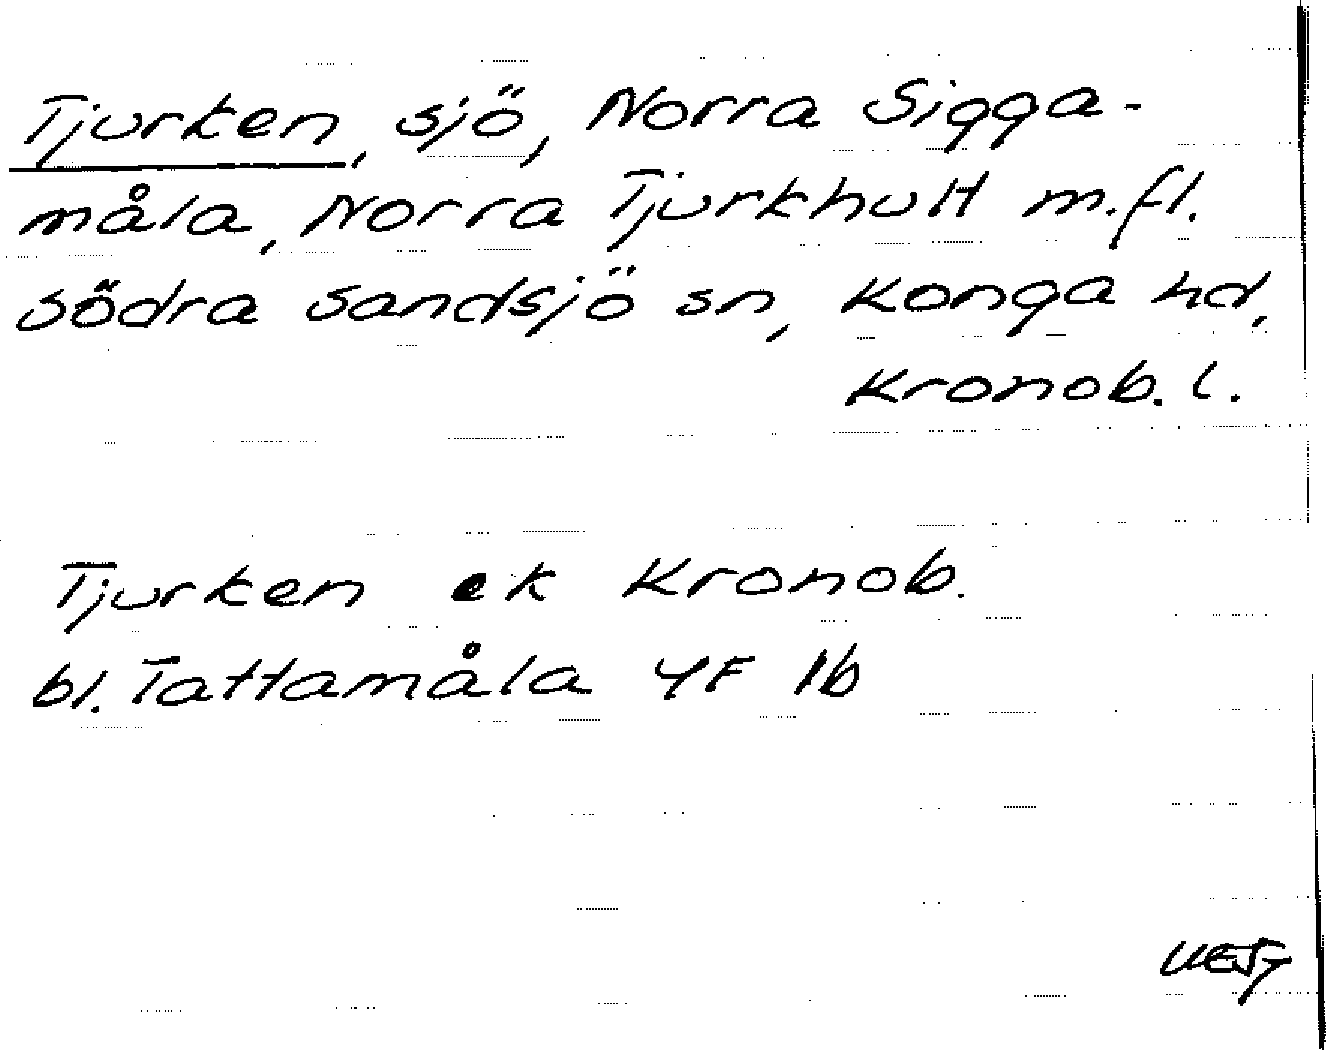 Tjurken, sjö, Norra Sigga-
måla, Norra Tjurkhult m.fl.
Södra Sandsjö sn, Konga hd,
Kronob. l.
Tjurken ek Kronob.
bl. Tattamåla 4F 1b